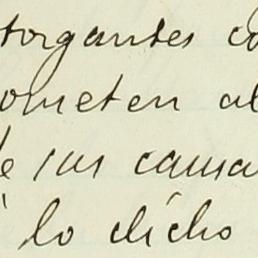 torgantes co
ometen al
e sus causa
lo dicho